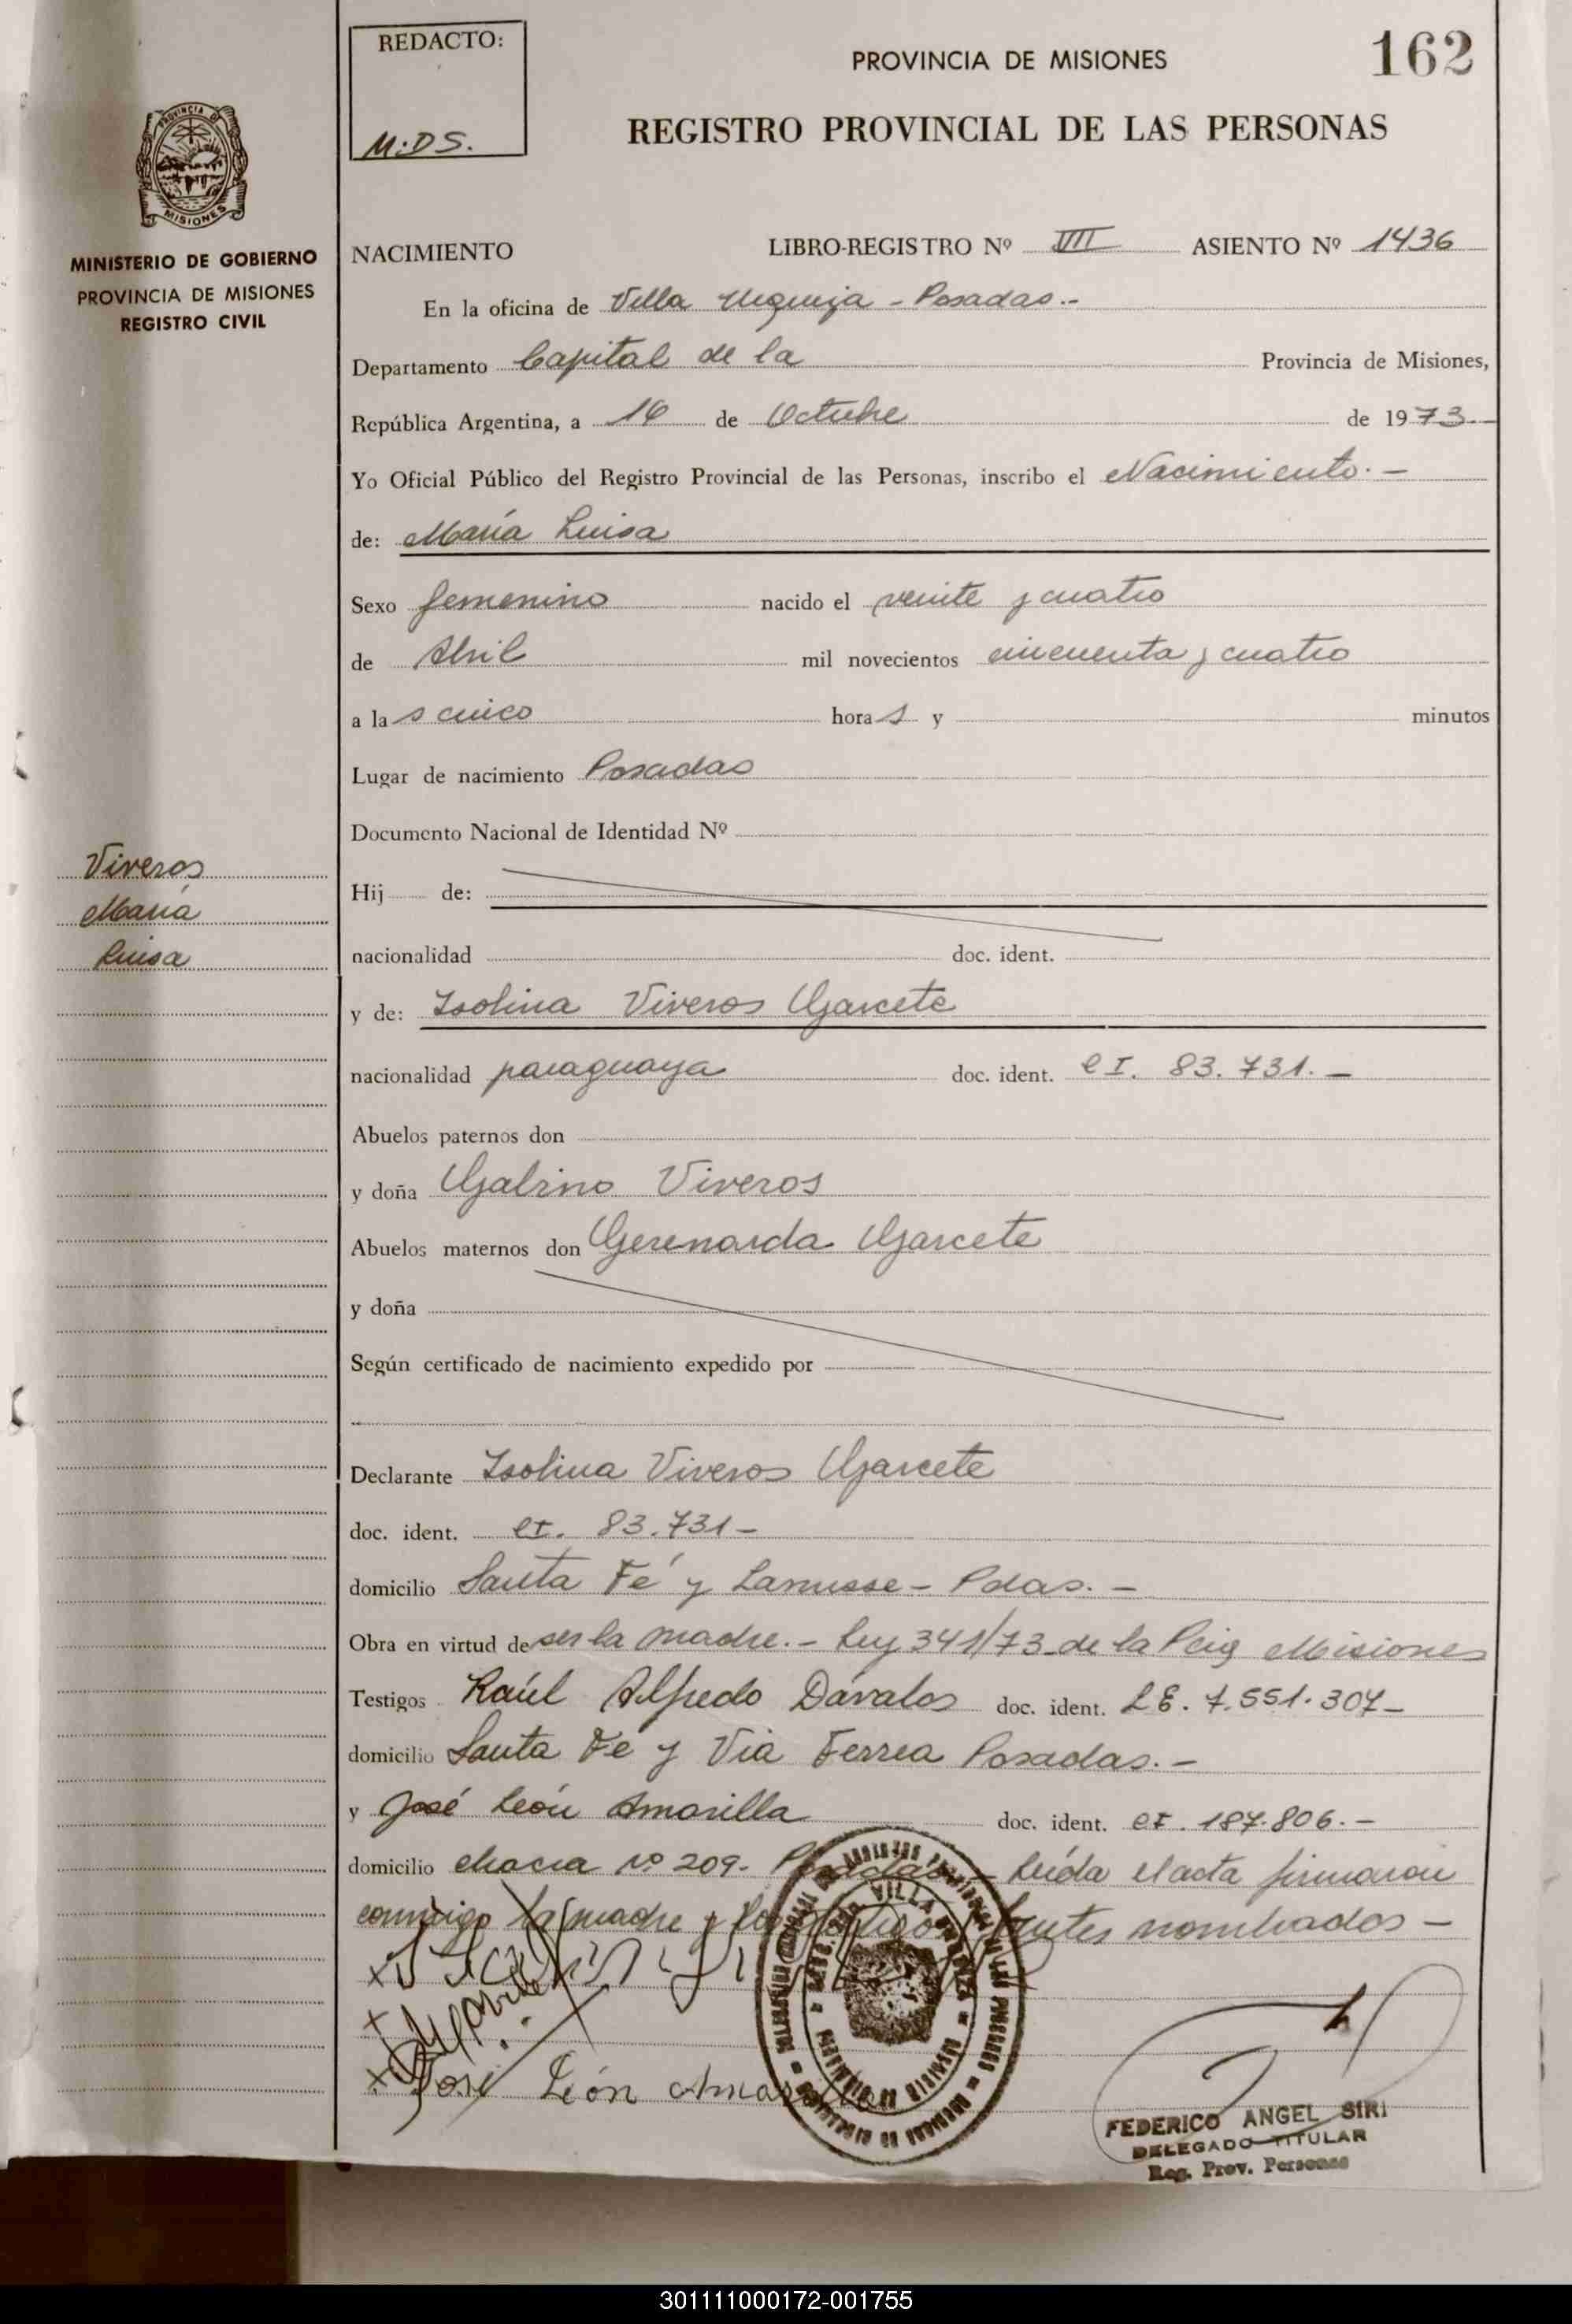 REDACTO:
M.D.S.
PROVINCIA DE MISIONES
162
REGISTRO PROVINCIAL DE LAS PERSONAS
PROVINCIA DE
MISIONES
MINISTERIO DE GOBIERNO
PROVINCIA DE MISIONES
REGISTRO CIVIL
NACIMIENTO LIBRO-REGISTRO Nº VII ASIENTO Nº 1436
En la oficina de Villa Urquiza - Posadas.-
Departamento Capital de la Provincia de Misiones,
República Argentina, a 16 de Octubre de 1973.-
Yo Oficial Público del Registro Provincial de las Personas, inscribo el Nacimiento.-
de: María Luisa
Sexo femenino nacido el veinte y cuatro
de Abril mil novecientos cincuenta y cuatro
a las cinco horas y minutos
Lugar de nacimiento Posadas
Documento Nacional de Identidad Nº
Viveros
María
Luisa
Hij de:
nacionalidad doc. ident.
y de: Isolina Viveros Garcete
nacionalidad paraguaya doc. ident. CI. 83.731.-
Abuelos paternos don
y doña Gabino Viveros
Abuelos maternos don Gerenarda Garcete
y doña
Según certificado de nacimiento expedido por
Declarante Isolina Viveros Garcete
doc. ident. CI. 83.731-
domicilio Santa Fé y Lanusse - Pdas.-
Obra en virtud de ser la madre.- Ley 341/73 de la Pcia Misiones
Testigos Raúl Alfredo Dávalos doc. ident. LE. 7.551.307-
domicilio Santa Fe y Via Ferrea Posadas.-
y José León Amarilla doc. ident. CI. 187.806.-
domicilio chacra Nº 209- Posadas- Leída el acta firmaron
conmigo la madre y los testigos antes nombrados-
José León Amarilla
FEDERICO ANGEL SIRI
DELEGADO TITULAR
Reg. Prov. Personas
301111000172-001755